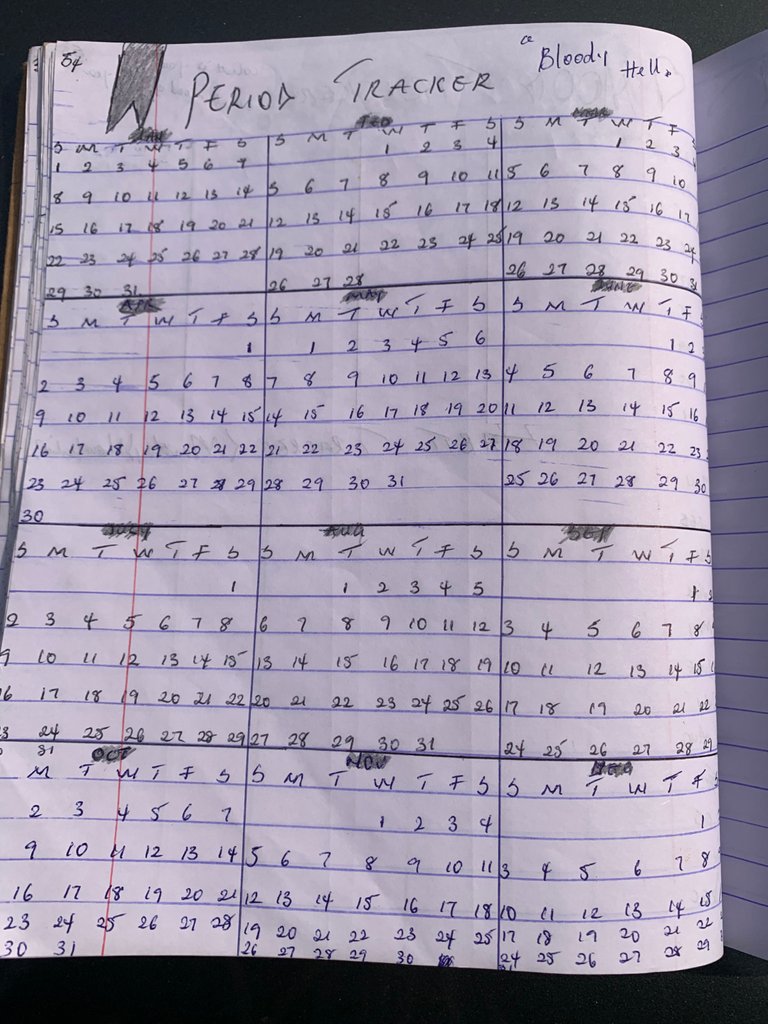 54
PERIOD TRACKER
"Bloody Hell"
JAN
S M T W T F S
1 2 3 4 5 6 7
8 9 10 11 12 13 14
15 16 17 18 19 20 21
22 23 24 25 26 27 28
29 30 31
FEB
S M T W T F S
1 2 3 4
5 6 7 8 9 10 11
12 13 14 15 16 17 18
19 20 21 22 23 24 25
26 27 28
MAR
S M T W T F
1 2 3
5 6 7 8 9 10
12 13 14 15 16 17
19 20 21 22 23 24
26 27 28 29 30 31
APR
S M T W T F S
1
2 3 4 5 6 7 8
9 10 11 12 13 14 15
16 17 18 19 20 21 22
23 24 25 26 27 28 29
30
MAY
S M T W T F S
1 2 3 4 5 6
7 8 9 10 11 12 13
14 15 16 17 18 19 20
21 22 23 24 25 26 27
28 29 30 31
JUNE
S M T W T F S
1 2
4 5 6 7 8 9
11 12 13 14 15 16
18 19 20 21 22 23
25 26 27 28 29 30
JULY
S M T W T F S
1
2 3 4 5 6 7 8
9 10 11 12 13 14 15
16 17 18 19 20 21 22
24 25 26 27 28 29
31
AUG
S M T W T F S
1 2 3 4 5
6 7 8 9 10 11 12
13 14 15 16 17 18 19
20 21 22 23 24 25 26
27 28 29 30 31
SEP
S M T W T F S
1 2
3 4 5 6 7 8
10 11 12 13 14 15
17 18 19 20 21 22
24 25 26 27 28 29
OCT
M T W T F S
2 3 4 5 6 7
9 10 11 12 13 14
16 17 18 19 20 21
23 24 25 26 27 28
30 31
NOV
S M T W T F S
1 2 3 4
5 6 7 8 9 10 11
12 13 14 15 16 17 18
19 20 21 22 23 24 25
26 27 28 29 30
DEC
S M T W T F
1
3 4 5 6 7 8
10 11 12 13 14 15
17 18 19 20 21 22
24 25 26 27 28 29
31